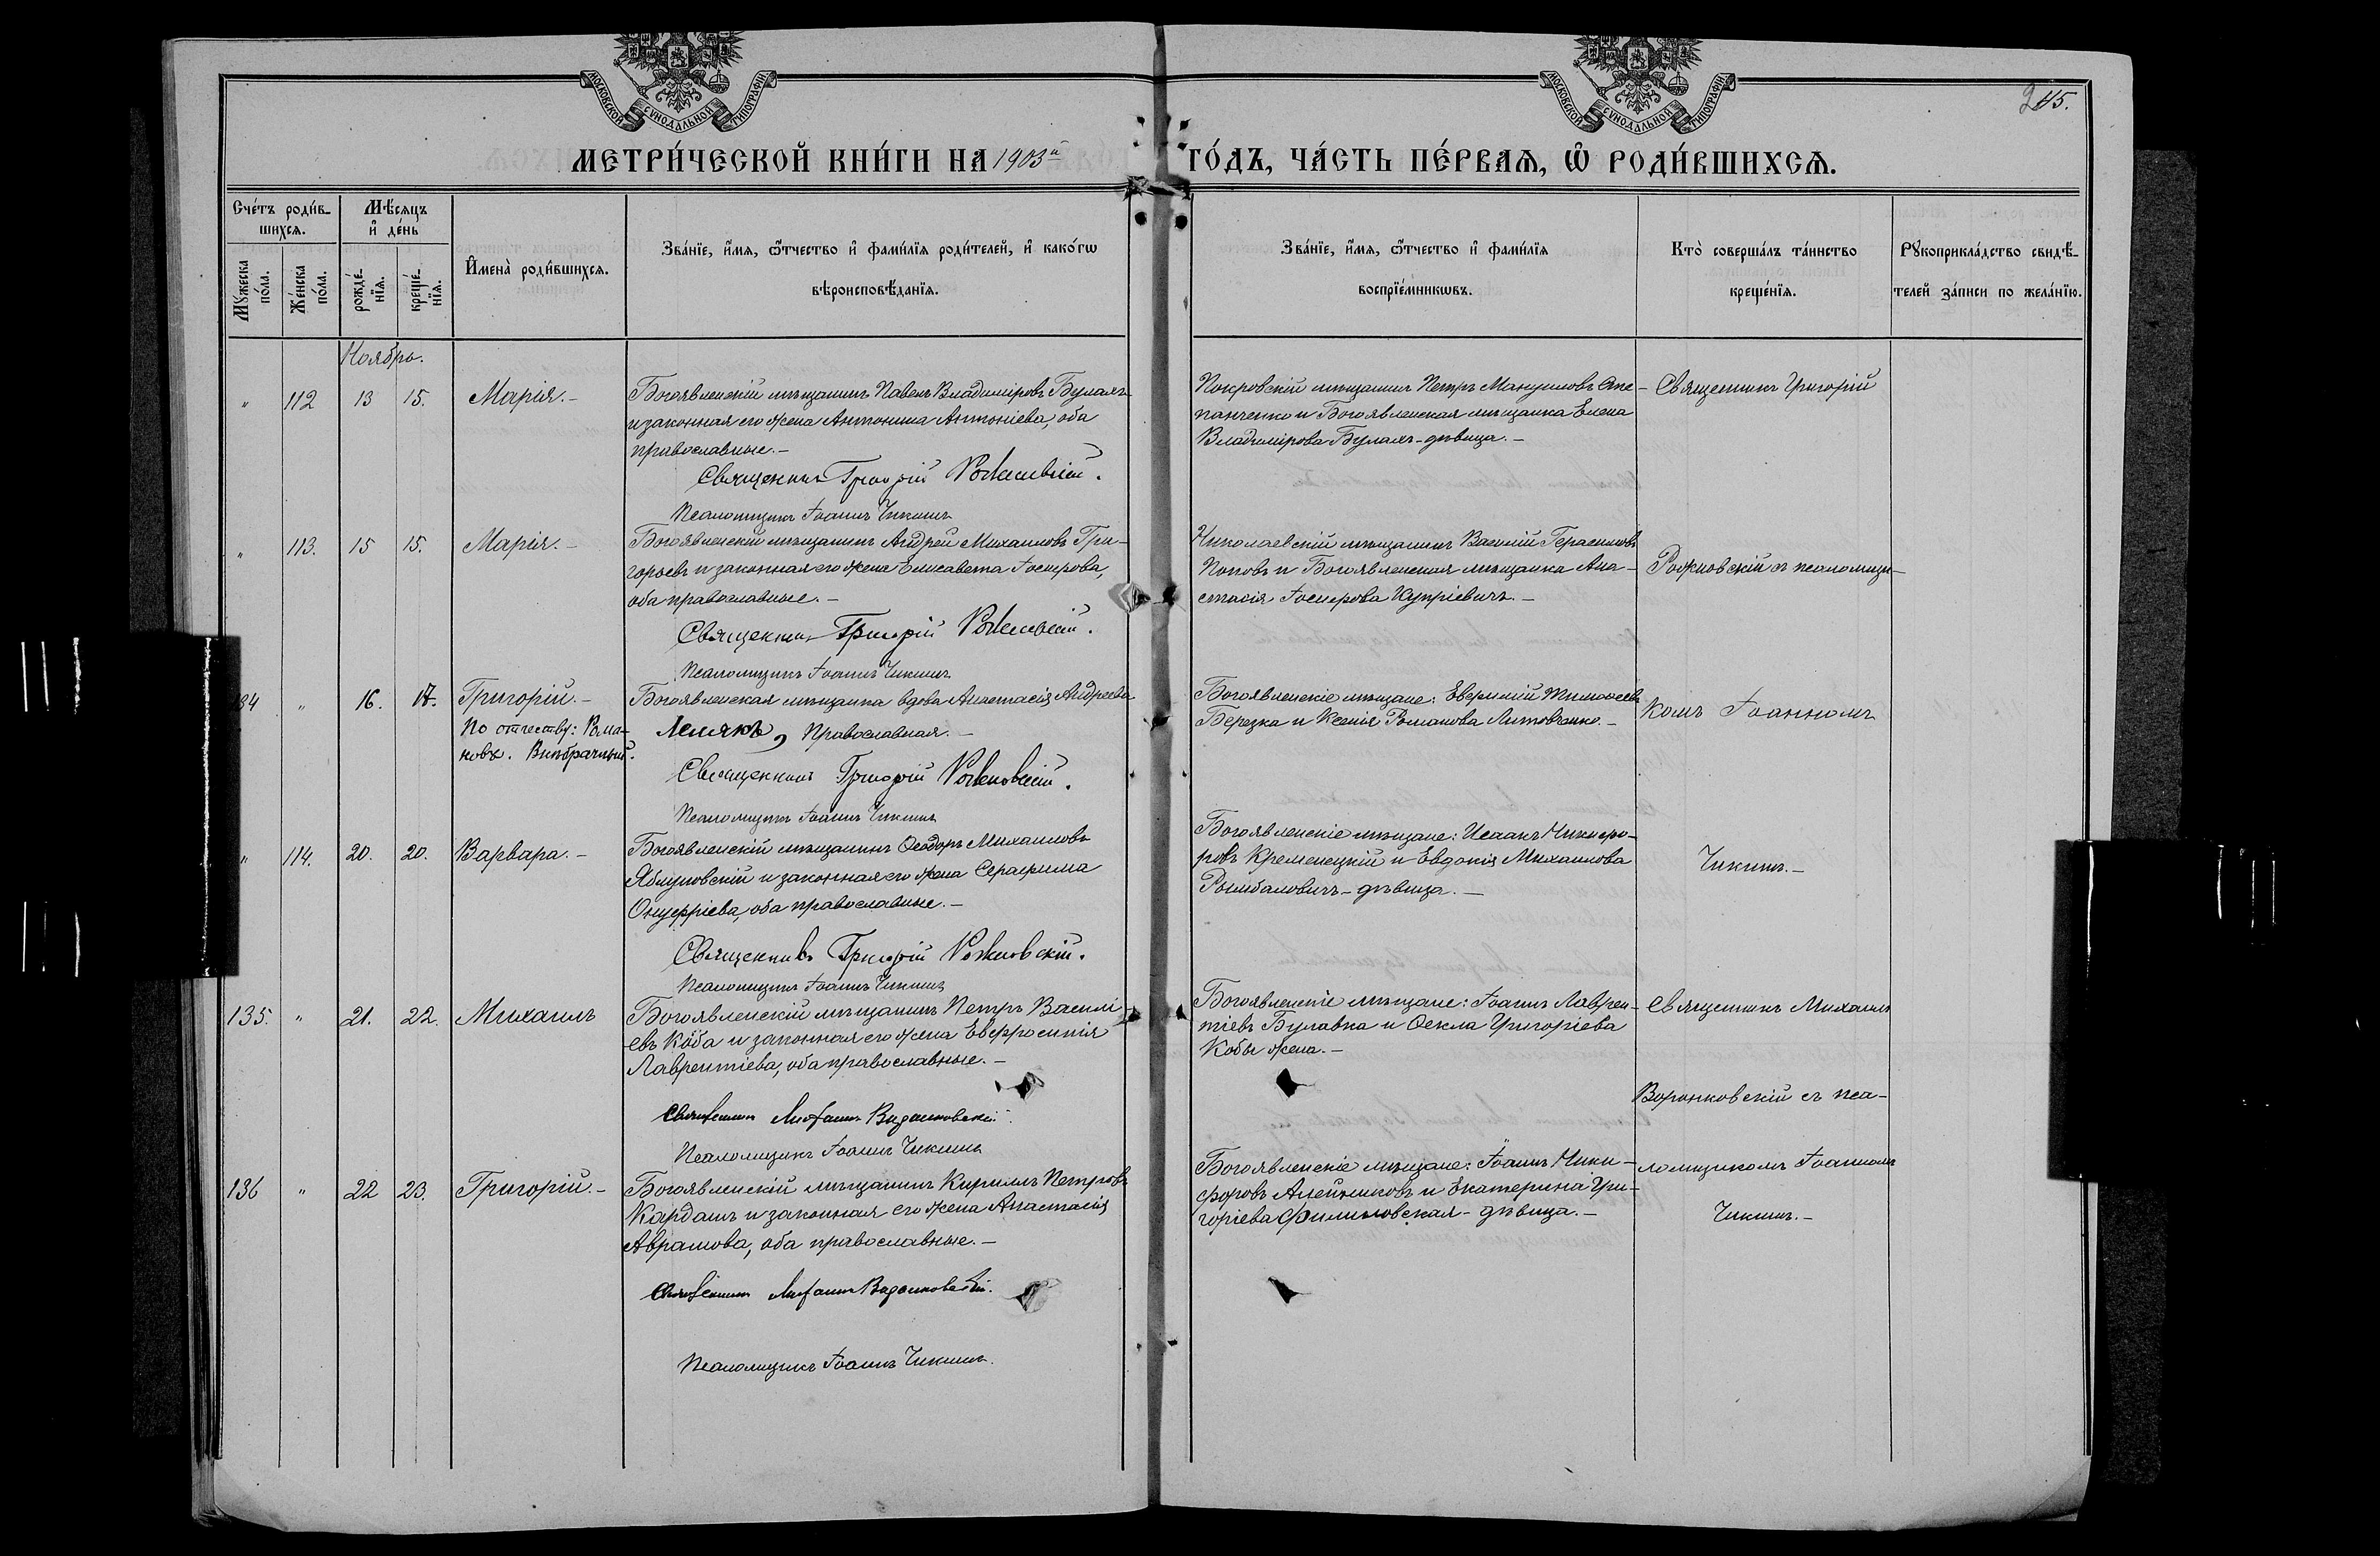 МОСКОВСКОЙ СУНОДАЛЬНОЙ ТИПОГРАФІИ
МОСКОВСКОЙ СУНОДАЛЬНОЙ ТИПОГРАФІИ
245.
МЕТРИ́ЧЕСКОЙ КНИ́ГИ НА 1903й ГО́ДЪ, ЧА́СТЬ ПЕ́РВАѦ, Ѽ РОДИ́ВШИХСѦ.
Сче́тъ роди́в-
шихсѧ.
Мѣ́сяцъ
и҆ де́нь
Мꙋжеска
по́ла.
Же́нска
по́ла.
рожде́-
нїѧ.
креще́-
нїѧ.
И҆мена̀ роди́вшихсѧ.
Зва́нїе, и҆́мѧ, ѻ҆́тчество и҆ фами́лїѧ роди́телей, и҆ како́гѡ
вѣроисповѣ́данїѧ.
Зва́нїе, и҆́мѧ, ѻ҆́тчество и҆ фами́лїѧ
воспрїе́мникѡвъ.
Кто̀ соверша́лъ та́инство
креще́нїѧ.
Рꙋкоприкла́дство свидѣ́-
телей за́писи по жела́нїю.
Ноябрь.
" 112 13 15. Марія.-
Богоявленскій мѣщанинъ Павелъ Владиміровъ Булахъ
и законная его жена Антонина Антоніева, оба
православные.-
Священникъ Григорій Рожновскій.
Псаломщикъ Іоаннъ Чикинъ
Покровскій мѣщанинъ Петръ Мануиловъ Сте-
панченко и Богоявленская мѣщанка Елена
Владимірова Булахъ-дѣвица.-
Священникъ Григорій
" 113. 15 15. Марія.-
Богоявленскій мѣщанинъ Андрей Михаиловъ Гри-
горьевъ и законная его жена Елисавета Іосифова,
оба православные.-
Священникъ Григорій Рожновскій.
Псаломщикъ Іоаннъ Чикинъ
Николаевскій мѣщанинъ Василій Герасимовъ
Поповъ и Богоявленская мѣщанка Ана-
стасія Іосифова Купріевичъ.-
Рожновскій съ псаломщи-
134 " 16. 17. Григорій.-
По отчеству: Рома-
новъ. Внѣбрачный.
Богоявленская мѣщанка вдова Анастасія Андреева
Лемякъ, православная.-
Священникъ Григорій Рожновскій.
Псаломщикъ Іоаннъ Чикинъ
Богоявленскіе мѣщане: Евфимій Тимоѳеевъ
Березка и Ксенія Романова Литовченко.-
комъ Іоанномъ
" 114. 20. 20. Варвара.-
Богоявленскій мѣщанинъ Ѳеодоръ Михаиловъ
Яблуновскій и законная его жена Серафима
Онуфріева, оба православные.-
Священникъ Григорій Рожновскій.
Псаломщикъ Іоаннъ Чикинъ
Богоявленскіе мѣщане: Исаакъ Никифо-
ровъ Кременецкій и Евдокія Михаилова
Рымбаловичъ-дѣвица.-
Чикинъ.-
135. " 21. 22. Михаилъ
Богоявленскій мѣщанинъ Петръ Василі-
евъ Коба и законная его жена Евфросинія
Лаврентіева, оба православные.-
Священникъ Михаилъ Воронковскій.
Псаломщикъ Іоаннъ Чикинъ
Богоявленскіе мѣщане: Іоаннъ Лаврен-
тіевъ Булавка и Ѳекла Григоріева
Кобы жена.-
Священникъ Михаилъ
Воронковскій съ пса-
136 " 22 23. Григорій.-
Богоявленскій мѣщанинъ Кириллъ Петровъ
Кардашъ и законная его жена Анастасія
Аврамова, оба православные.-
Священникъ Михаилъ Воронковскій.
Псаломщикъ Іоаннъ Чикинъ.
Богоявленскіе мѣщане: Іоаннъ Ники-
форовъ Алейниковъ и Екатерина Гри-
горіева Филиповская-дѣвица.-
ломщикомъ Іоанномъ
Чикинъ.-